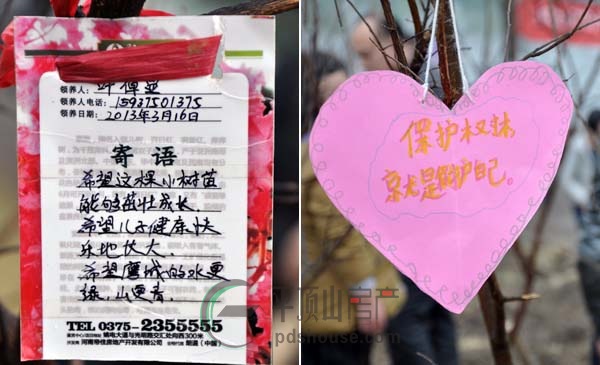 领养人:
领养人电话: 15937501375
领养日期: 2013年3月16日
寄 语
希望这棵小树苗
能够茁壮成长.
希望儿子健康快
乐地长大.
希望鹰城的水更
绿,山更青.
TEL 0375-2355555
姚电大道与光明路交汇处向西300米
保护权林,
京尤是保护自己。
平顶山房产
pdshouse.com